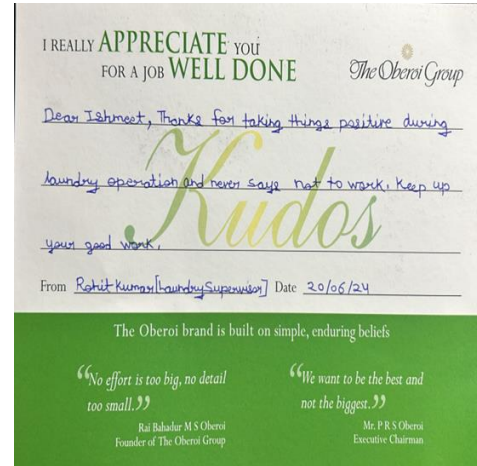 I REALLY APPRECIATE YOU
FOR A JOB WELL DONE
The Oberoi Group
Dear Ishmeet, Thanks for taking things positive during
laundry operation and never says not to work. Keep up
your good work.
Kudos
From Rohit Kumar [Laundry Supervisor] Date 20/06/24
The Oberoi brand is built on simple, enduring beliefs
“No effort is too big, no detail
too small.”
Rai Bahadur M S Oberoi
Founder of The Oberoi Group
“We want to be the best and
not the biggest.”
Mr. P R S Oberoi
Executive Chairman